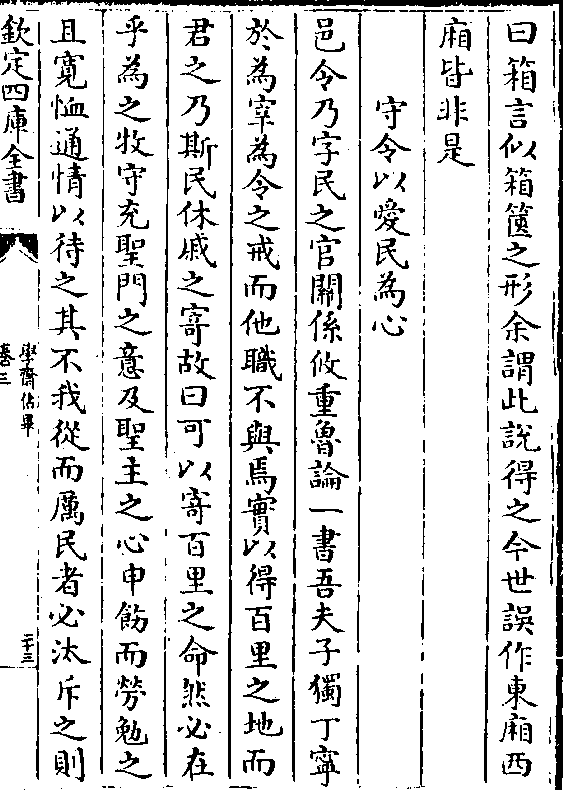 曰箱言似箱篋之形余謂此說得之今世誤作東廂西
廂皆非是
守令以愛民為心
邑令乃字民之官關係攸重魯論一書吾夫子獨丁寧
於為宰為令之戒而他職不與焉實以得百里之地而
君之乃斯民休戚之寄故曰可以寄百里之命然必在
乎為之牧守充聖門之意及聖主之心申飭而勞勉之
且寛恤通情以待之其不我從而厲民者必汰斥之則
欽定四庫全書
學齋佔畢
卷三
二十三